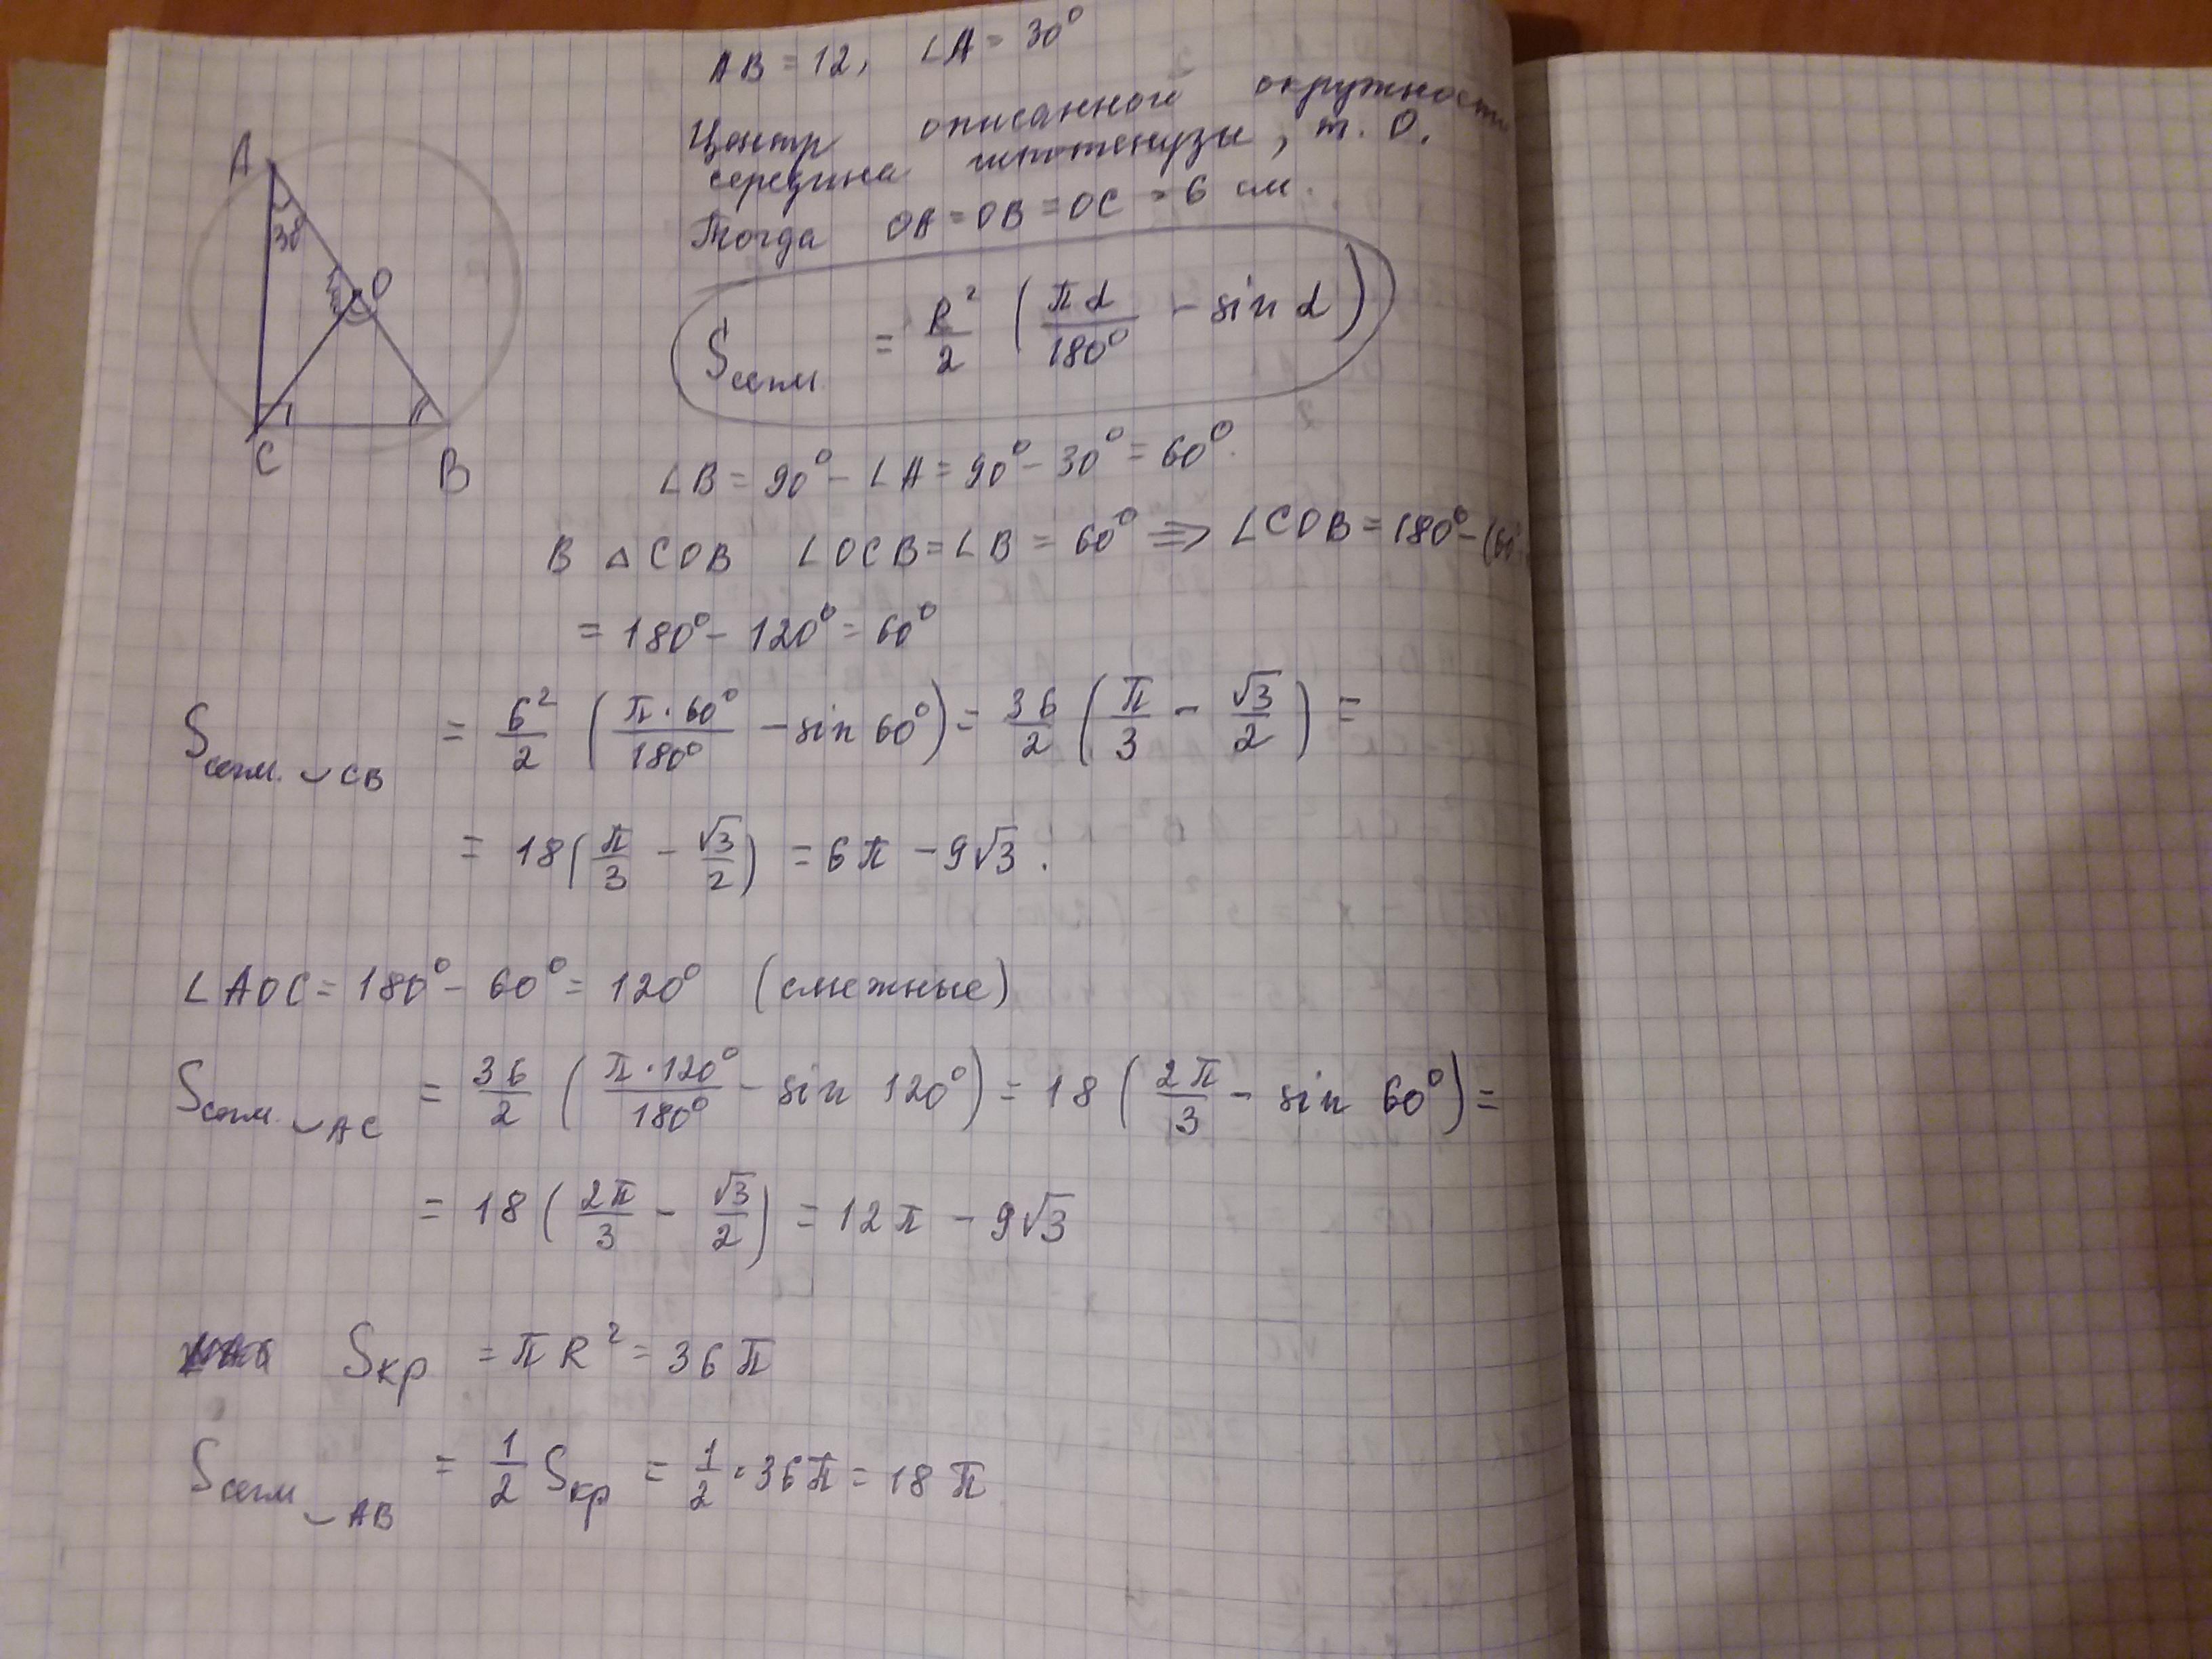 AB = 12, ∠A = 30°
Центр описанной окружности
середина гипотенузы, т. O.
Тогда OA = OB = OC = 6 см.
A
30°
O
C
B
Sсегм. = R²/2 (πα/180° - sin α)
∠B = 90° - ∠A = 90° - 30° = 60°.
В △COB ∠OCB = ∠B = 60° ⇒ ∠COB = 180° - (60°
= 180° - 120° = 60°
Sсегм. ◡CB = 6²/2 (π·60°/180° - sin 60°) = 36/2 (π/3 - √3/2) =
= 18(π/3 - √3/2) = 6π - 9√3.
∠AOC = 180° - 60° = 120° (смежные)
Sсегм. ◡AC = 36/2 (π·120°/180° - sin 120°) = 18 (2π/3 - sin 60°) =
= 18 (2π/3 - √3/2) = 12π - 9√3
Sкр = πR² = 36π
Sсегм ◡AB = 1/2 Sкр = 1/2 · 36π = 18π